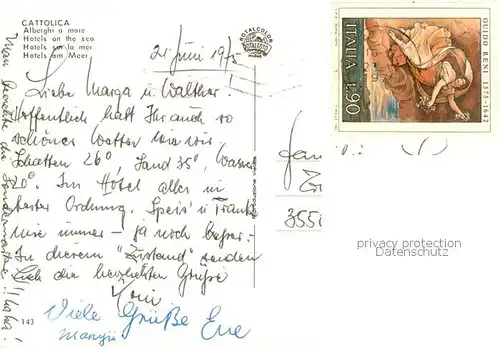 CATTOLICA
Alberghi a mare
Hotels on the sea
Hotels sur la mer
Hotels am Meer
ROTALCOLOR
ROTALFOTO
21 Juni 1975
Liebe Marga u Walther!
Hoffentlich habt Ihr auch so
schönes Wetter wie wir.
Schatten 26°, Sand 35°, Wasser
20°. Im Hotel alles in
bester Ordnung. Speis' u Trank
wie immer – ja noch besser.-
In diesem "Zustand" senden
Euch die herzlichsten Grüße
Viele Grüße Eue
143
Man beachte die Sondermarke!! haha!
GUIDO RENI 1575-1642
ITALIA L.90
3550
privacy protection
Datenschutz